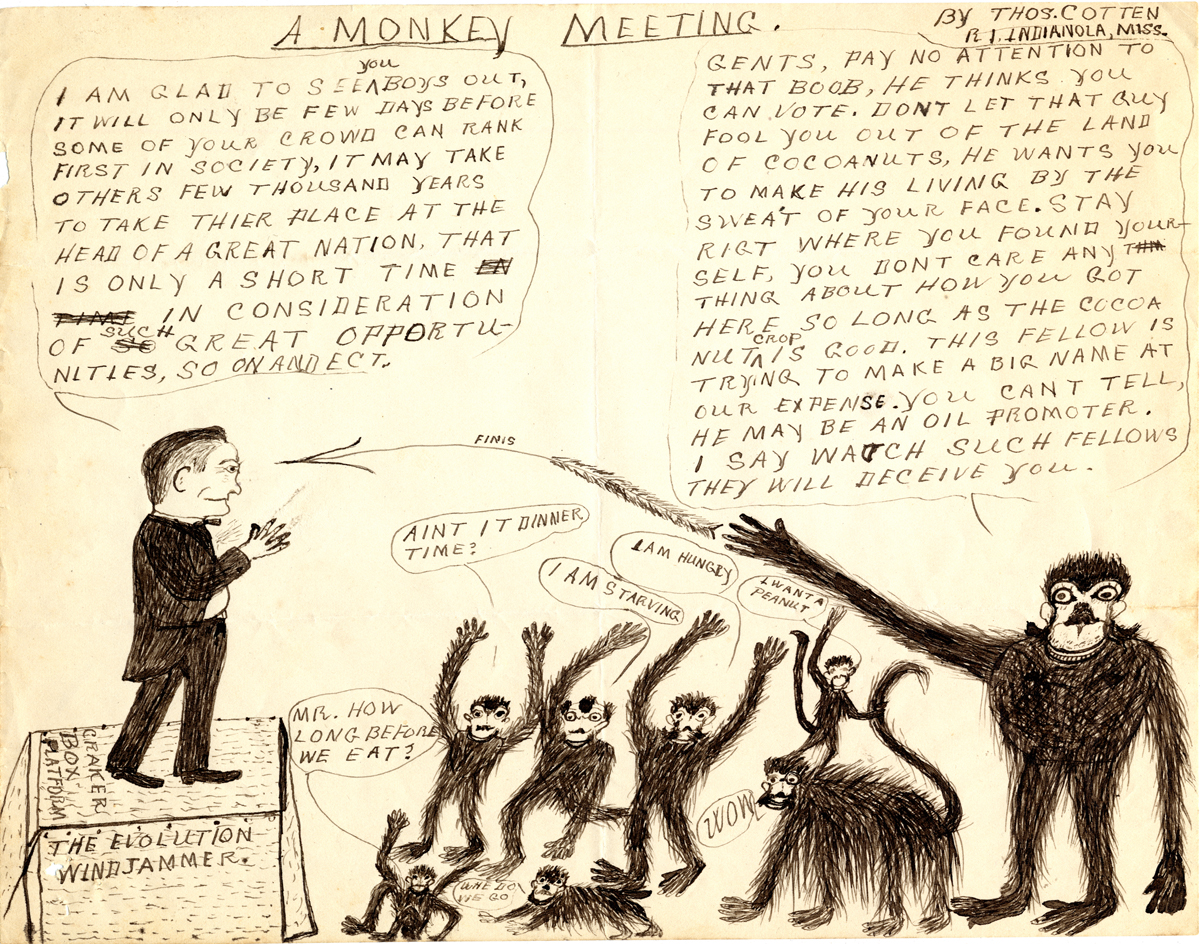 A MONKEY MEETING.
BY THOS. COTTEN
R 1. INDIANOLA, MISS.
I AM GLAD TO SEE you BOYS OUT,
IT WILL ONLY BE FEW DAYS BEFORE
SOME OF YOUR CROWD CAN RANK
FIRST IN SOCIETY, IT MAY TAKE
OTHERS FEW THOUSAND YEARS
TO TAKE THIER PLACE AT THE
HEAD OF A GREAT NATION, THAT
IS ONLY A SHORT TIME EN
TIME IN CONSIDERATION
OF SO SUCH GREAT OPPORTU-
NITIES, SO ON AND ECT.
GENTS, PAY NO ATTENTION TO
THAT BOOB, HE THINKS YOU
CAN VOTE. DONT LET THAT GUY
FOOL YOU OUT OF THE LAND
OF COCOANUTS, HE WANTS YOU
TO MAKE HIS LIVING BY THE
SWEAT OF YOUR FACE. STAY
RIGT WHERE YOU FOUND YOUR-
SELF, YOU DONT CARE ANY
THING ABOUT HOW YOU GOT
HERE SO LONG AS THE COCOA
NUT CROP IS GOOD. THIS FELLOW IS
TRYING TO MAKE A BIG NAME AT
OUR EXPENSE. YOU CANT TELL,
HE MAY BE AN OIL PROMOTER.
I SAY WATCH SUCH FELLOWS
THEY WILL DECEIVE YOU.
FINIS
AINT IT DINNER
TIME?
I AM HUNGRY
I AM STARVING
I WANT A
PEANUT
MR. HOW
LONG BEFORE
WE EAT?
WOW
WHE DO
WE GO
CRAKER
BOX
PLATFORM
THE EVOLUTION
WINDJAMMER.